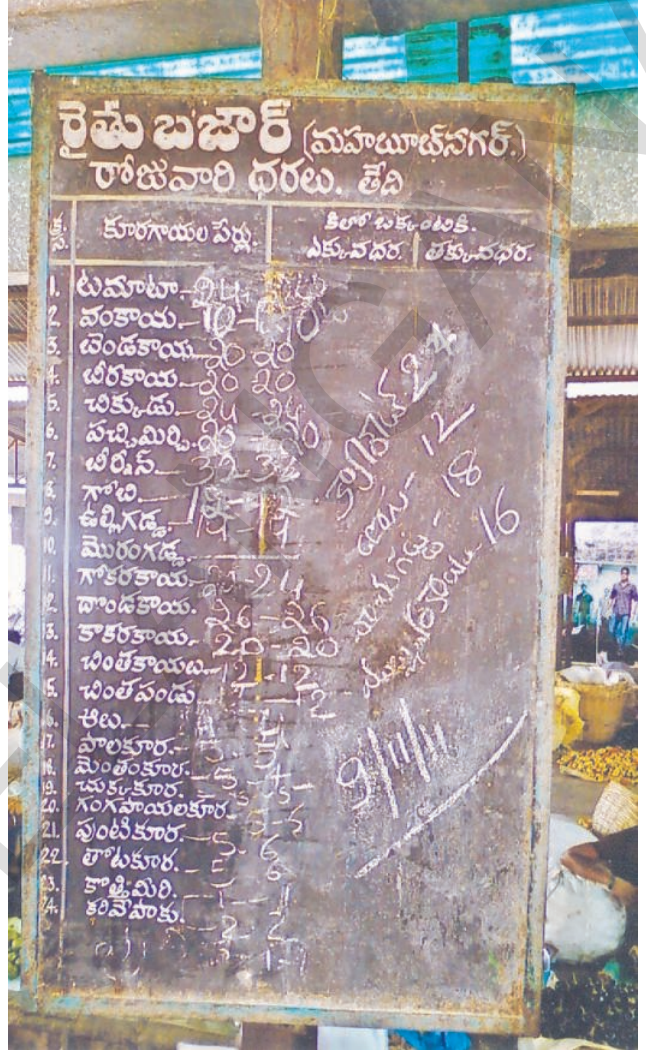 రైతు బజార్ (మహబూబ్‌నగర్.)
రోజువారి ధరలు. తేది
క్ర. సం. కూరగాయల పేర్లు. కిలో ఒక్కంటికి.
ఎక్కువధర. తక్కువధర.
1. టుమాటా. 24
2. వంకాయ. 10 - 10
3. బెండకాయ 20 20
4. బీరకాయ 20 20
5. చిక్కుడు 24 - 24
6. పచ్చిమిర్చి. 20 - 20
7. బీర్నీస్ 32 - 32
8. గోబి. 18
9. ఉల్లిగడ్డ. 14 - 14
10. మొరంగడ్డ
11. గోకరకాయ 24
12. దొండకాయ. 26 - 26
13. కాకరకాయ. 20 - 20
14. చింతకాయలు 12 - 12
15. చింతపండు 12
16. ఆలు.
17. పాలకూర. 5
18. మెంతంకూర. 5
19. చుక్కకూర. 5 5
20. గంగపాయలకూర 5 - 5
21. పుంటికూర. 5 - 6
22. తోటకూర. 6
23. కొత్తిమిరి. 1 - 1
24. కరివేపాకు. 2 - 2
క్యారెట్ 24
ఆలు 12
18
16
9/11/11